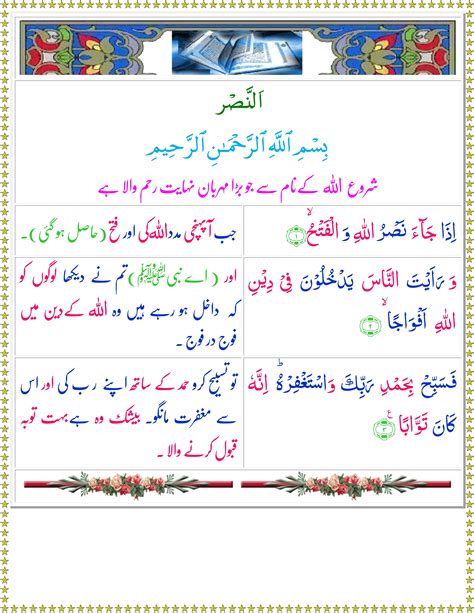 اَلنَّصْر
بِسْمِ اللَّهِ الرَّحْمَٰنِ الرَّحِيمِ
شروع اللہ کے نام سے جو بڑا مہربان نہایت رحم والا ہے
اِذَا جَآءَ نَصْرُ اللّٰهِ وَ الْفَتْحُۙ ۝۱
جب آپہنچی مدد اللہ کی اور فتح (حاصل ہوگئی)۔
وَ رَاَیْتَ النَّاسَ یَدْخُلُوْنَ فِیْ دِیْنِ
اللّٰهِ اَفْوَاجًاۙ ۝۲
اور (اے نبی ﷺ) تم نے دیکھا لوگوں کو
کہ داخل ہو رہے ہیں وہ اللہ کے دین میں
فوج در فوج۔
فَسَبِّحْ بِحَمْدِ رَبِّكَ وَاسْتَغْفِرْهُ ؕ اِنَّهٗ
كَانَ تَوَّابًا۠ ۝۳
تو تسبیح کرو حمد کے ساتھ اپنے رب کی اور اس
سے مغفرت مانگو۔ بیشک وہ ہے بہت توبہ
قبول کرنے والا۔